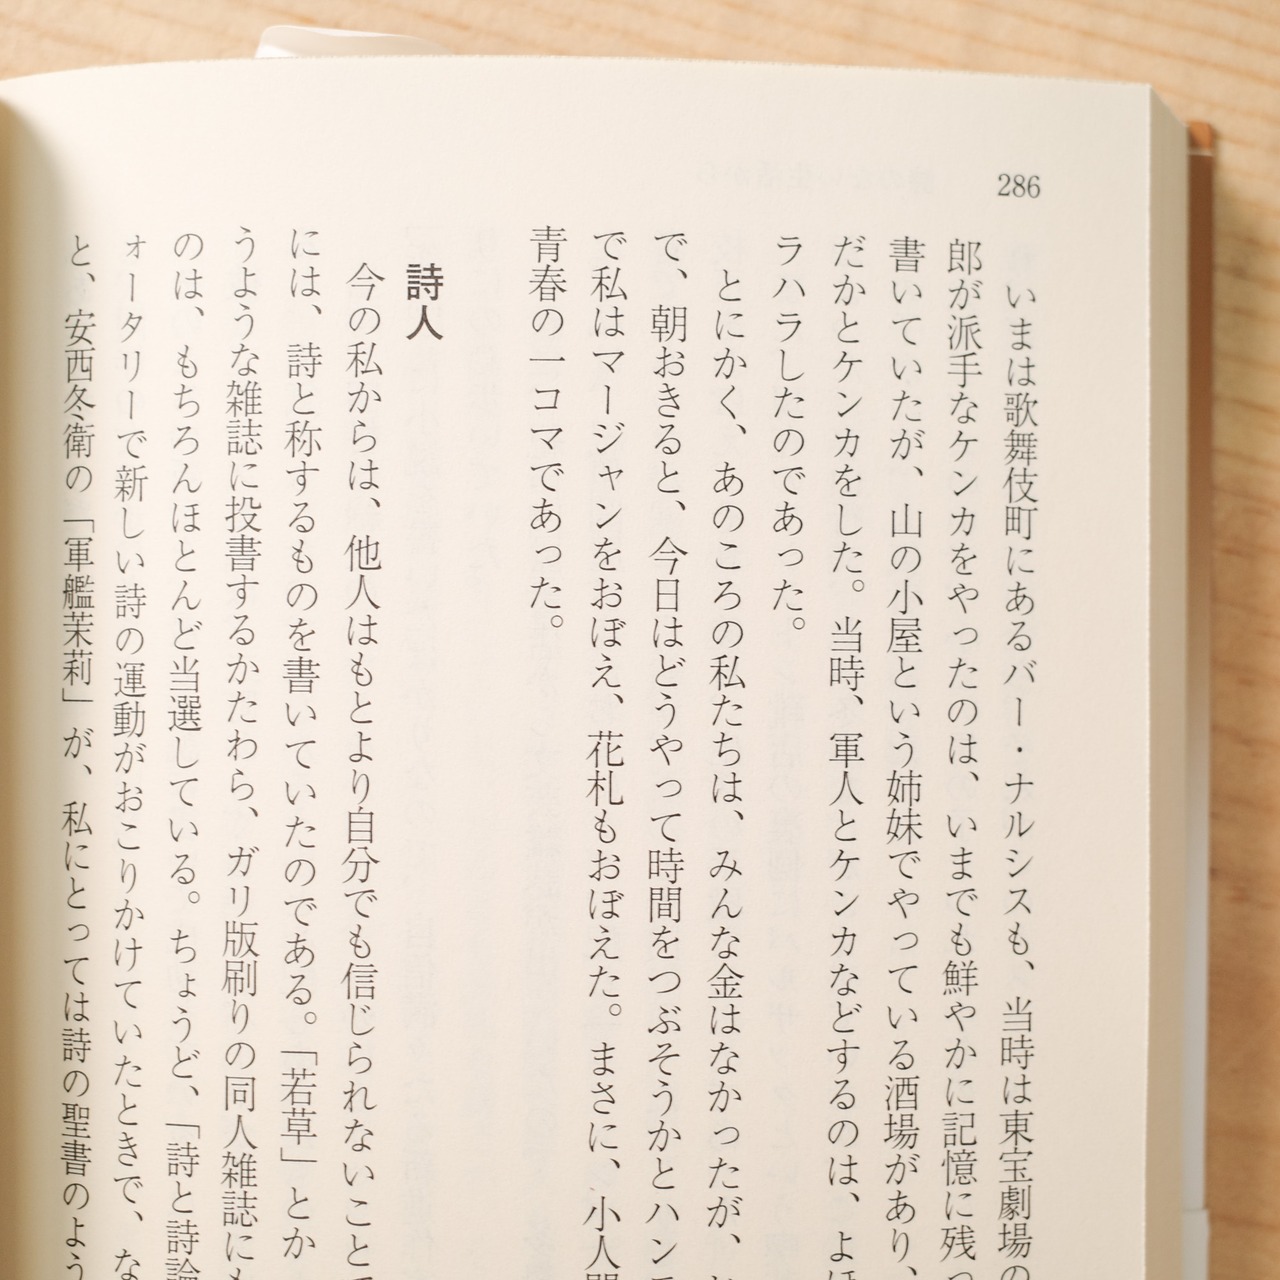 286
いまは歌舞伎町にあるバー・ナルシスも、当時は東宝劇場の
郎が派手なケンカをやったのは、いまでも鮮やかに記憶に残っ
書いていたが、山の小屋という姉妹でやっている酒場があり、
だかとケンカをした。当時、軍人とケンカなどするのは、よほ
ラハラしたのであった。
とにかく、あのころの私たちは、みんな金はなかったが、
で、朝おきると、今日はどうやって時間をつぶそうかとハン
で私はマージャンをおぼえ、花札もおぼえた。まさに、小人閒
青春の一コマであった。
詩人
今の私からは、他人はもとより自分でも信じられないこと
には、詩と称するものを書いていたのである。「若草」とか
うような雑誌に投書するかたわら、ガリ版刷りの同人雑誌にも
のは、もちろんほとんど当選している。ちょうど、「詩と詩論
ォータリーで新しい詩の運動がおこりかけていたときで、な
と、安西冬衛の「軍艦茉莉」が、私にとっては詩の聖書のよう